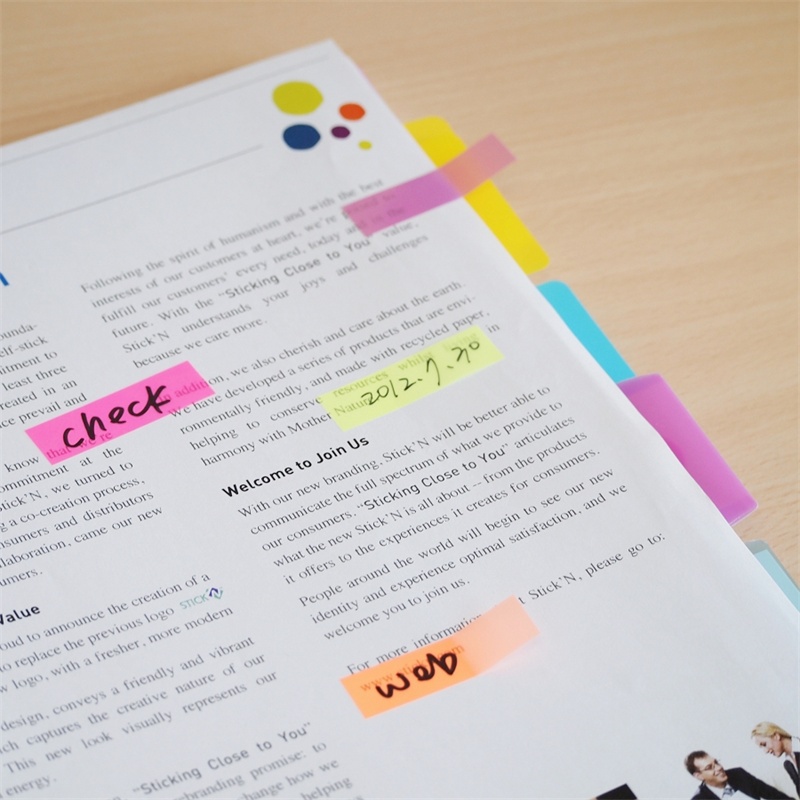 ounda-
elf-stick
itment to
least three
reated in an
ce prevail and
know that we're
ommitment at the
Stick'N, we turned to
g a co-creation process,
nsumers and distributors
llaboration, came our new
umers.
Value
oud to announce the creation of a
to replace the previous logo STICK'N
w logo, with a fresher, more modern
design, conveys a friendly and vibrant
ch captures the creative nature of our
This new look visually represents our
energy.
"Sticking Close to You"
ebranding promise: to
change how we
helping
check
Following the spirit of humanism and with the best
interests of our customers at heart, we're
fulfill our customers' every need, today and in the
future. With the "Sticking Close to You" value,
Stick'N understands your joys and challenges
because we care more.
In addition, we also cherish and care about the earth.
We have developed a series of products that are envi-
ronmentally friendly, and made with recycled paper,
helping to conserve resources whilst in
harmony with Mother Nature.
2012.7.30
Welcome to Join Us
With our new branding, Stick'N will be better able to
communicate the full spectrum of what we provide to
our consumers. "Sticking Close to You" articulates
what the new Stick'N is all about – from the products
it offers to the experiences it creates for consumers.
People around the world will begin to see our new
identity and experience optimal satisfaction, and we
welcome you to join us.
For more information t Stick'N, please go to:
web